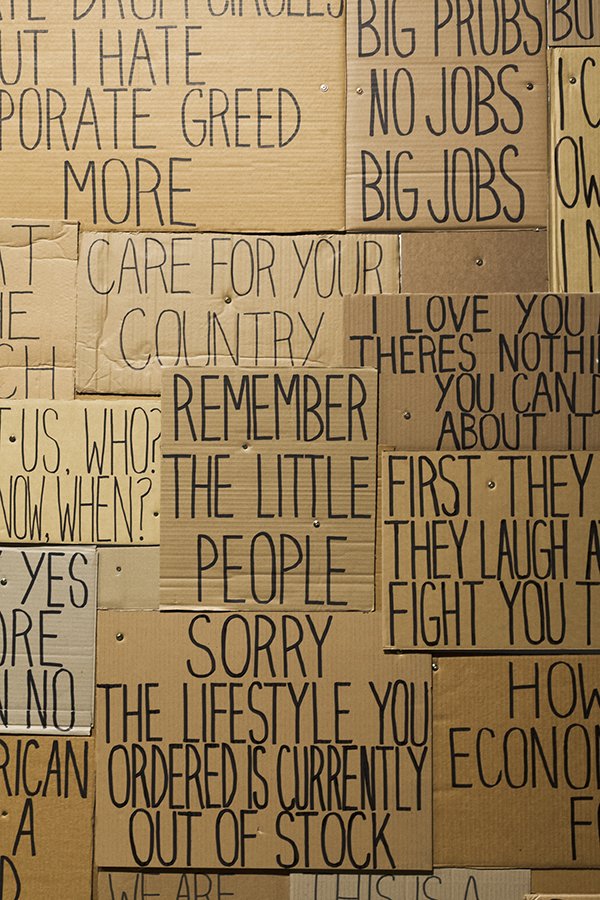 DRUM CIRCLES
I HATE
GREED
MORE
BIG PROBS
NO JOBS
BIG JOBS
I
CARE FOR YOUR
COUNTRY
I LOVE YOU
THERES
YOU CAN
ABOUT IT
US, WHO?
NOW, WHEN?
REMEMBER
THE LITTLE
PEOPLE
FIRST THEY
THEY LAUGH
FIGHT YOU
YES
NO
SORRY
THE LIFESTYLE YOU
ORDERED IS CURRENTLY
OUT OF STOCK
A
HOW
WE ARE
THIS IS A